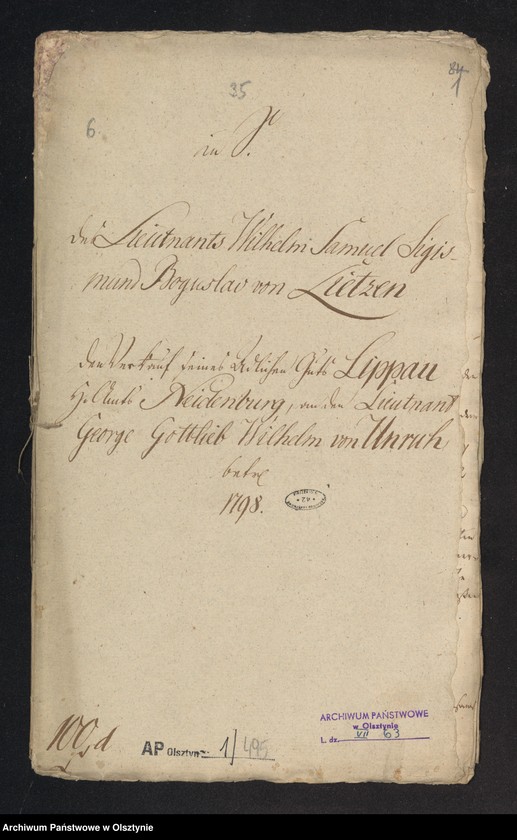 84
1
35
6
in S.
des Lieutnants Wilhelm Samuel Sigis-
mund Boguslav von Lietzen
den Verkauf seines Adlichen Guts Lippau
Neidenburg, an den Lieutnant
George Gottlieb Wilhelm von Unruh
betr
1798.
ARCHIWUM PAŃSTWOWE
w Olsztynie
L. dz. VII 63
AP Olsztyn 1/495
Archiwum Państwowe w Olsztynie